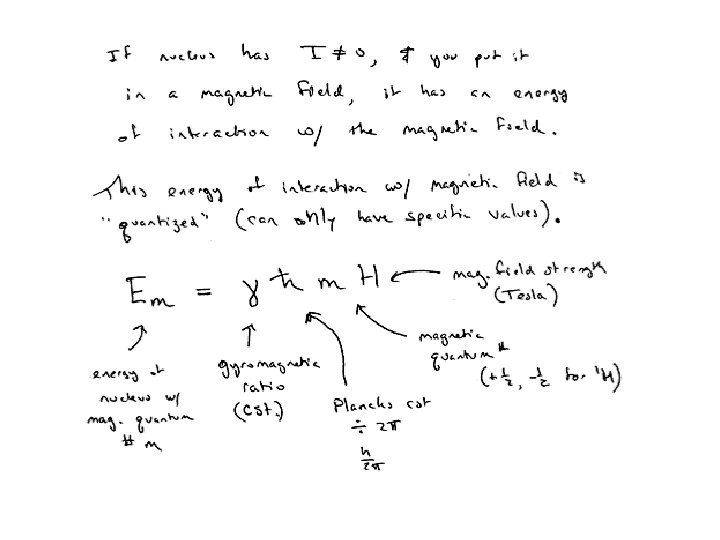 If nucleus has I ≠ 0, & you put it
in a magnetic field, it has an energy
of interaction w/ the magnetic field.
This energy of interaction w/ magnetic field is
"quantized" (can only have specific values).
E_m = γ ħ m H
mag. field strength
(Tesla)
magnetic
quantum #
(+½, -½ for ¹H)
energy of
nucleus w/
mag. quantum
# m
gyromagnetic
ratio
(cst.)
Plancks cst
÷ 2π
h/2π